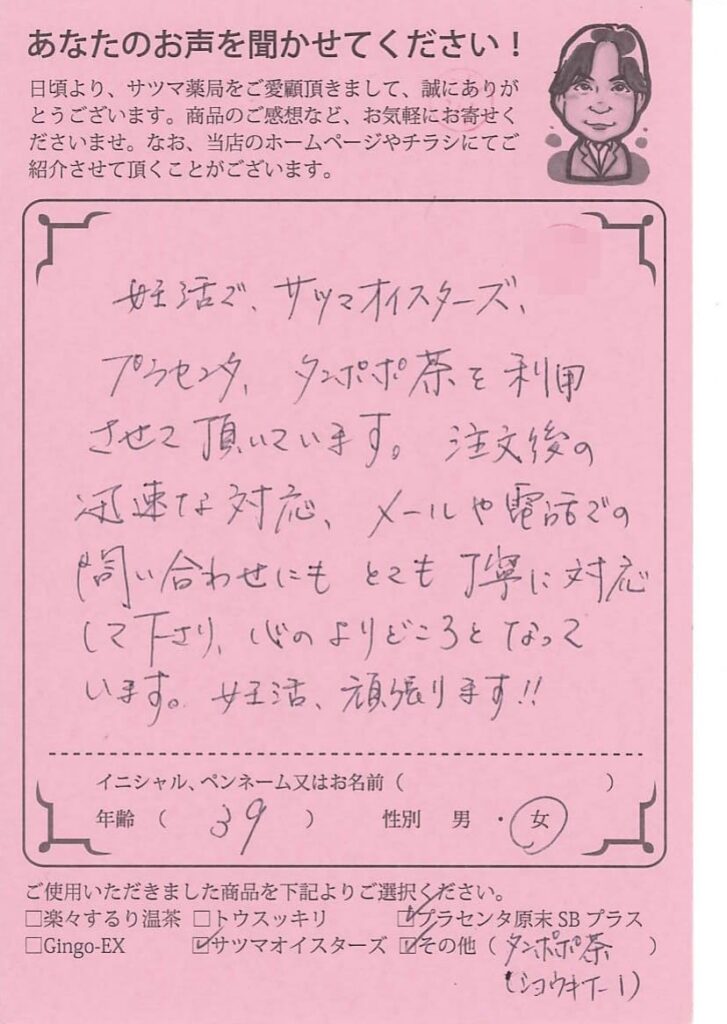 あなたのお声を聞かせてください！
日頃より、サツマ薬局をご愛顧頂きまして、誠にありが
とうございます。商品のご感想など、お気軽にお寄せく
ださいませ。なお、当店のホームページやチラシにてご
紹介させて頂くことがございます。
妊活で、サツマオイスターズ、
プラセンタ、タンポポ茶を利用
させて頂いています。注文後の
迅速な対応、メールや電話での
問い合わせにもとても丁寧に対応
して下さり、心のよりどころとなって
います。妊活、頑張ります!!
イニシャル、ペンネーム又はお名前（　）
年齢（39）　性別　男・女
ご使用いただきました商品を下記よりご選択ください。
□楽々するり温茶 □トウスッキリ ☑プラセンタ原末SBプラス
□Gingo-EX ☑サツマオイスターズ ☑その他（タンポポ茶）
（ショウキT-1）